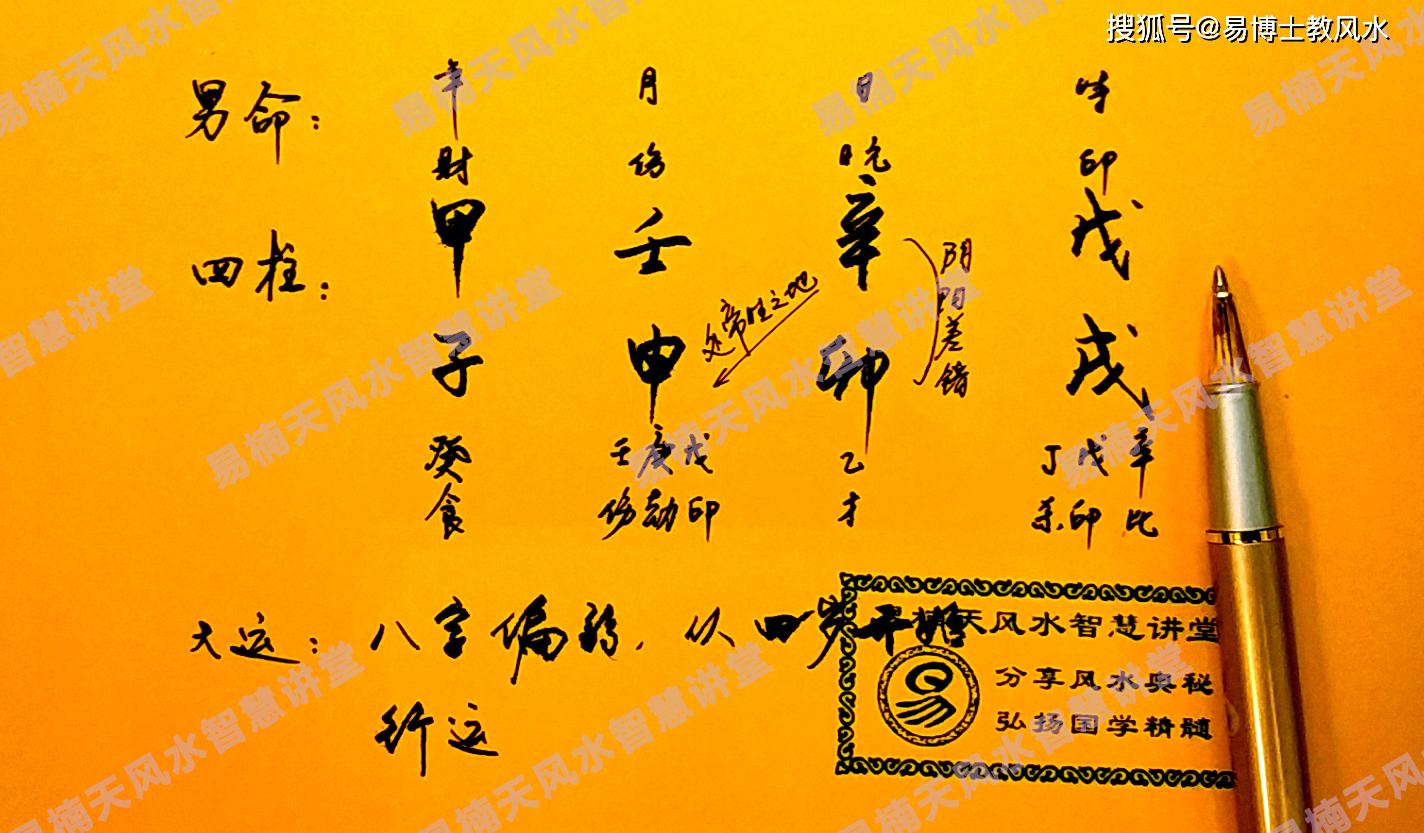 搜狐号@易博士教风水
男命： 年 月 日 时
财 伤 日元 印
四柱： 甲 壬 辛 戊
阴阳差错
处帝旺之地
子 申 卯 戌
癸 壬庚戊 乙 丁戊辛
食 伤劫印 才 杀印比
大运：八字偏弱，从四岁开始
行运
易楠天风水智慧讲堂
分享风水奥秘
弘扬国学精髓
易
易楠天风水智慧讲堂